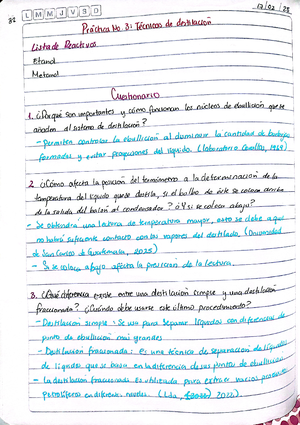 32 L M M J V S D 17/02/25
Práctica No. 3: Técnicas de destilación
Lista de Reactivos
Etanol
Metanol
Cuestionario
1. ¿Por qué son importantes y cómo funcionan los núcleos de ebullición que se
añaden al sistema de destilación?
- Permiten controlar la ebullición al disminuir la cantidad de burbujas
formadas y evitar proyecciones del líquido. (Laboratorio
2. ¿Cómo afecta la posición del termómetro a la determinación de la
temperatura del líquido que se destila, si el bulbo de éste se coloca arriba
de la salida del balón al condensador? ¿Y si se coloca abajo?
- Se obtendrá una lectura de temperatura mayor, esto se debe a que
no habrá suficiente contacto con los vapores del destilado. (Universidad
de San Carlos de Guatemala, 2025)
- Si se coloca abajo afecta la precisión de la lectura.
3. ¿Qué diferencia existe entre una destilación simple y una destilación
fraccionada? ¿Cuándo debe usarse este último procedimiento?
- Destilación simple: Se usa para separar líquidos con diferencias de
punto de ebullición más grandes
- Destilación fraccionada: Es una técnica de separación de líquidos
de líquidos que se basan en la diferencia de sus puntos de ebullición.
- La destilación fraccionada es utilizada para extraer varios productos
en diferentes niveles.